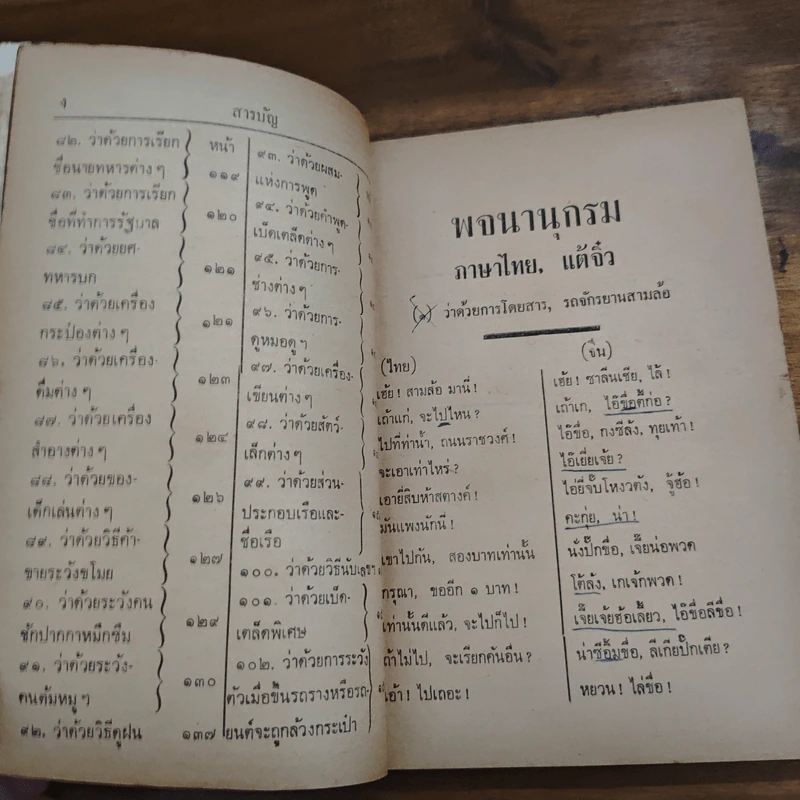 ๔
สารบัญ
๘๒. ว่าด้วยการเรียก
ชื่อนายทหารต่าง ๆ
๘๓. ว่าด้วยการเรียก
ชื่อที่ทำการรัฐบาล
๘๔. ว่าด้วยยศ-
ทหารบก
๘๕. ว่าด้วยเครื่อง
กระป๋องต่าง ๆ
๘๖. ว่าด้วยเครื่อง-
ดื่มต่าง ๆ
๘๗. ว่าด้วยเครื่อง
สำอางต่าง ๆ
๘๘. ว่าด้วยของ-
เด็กเล่นต่าง ๆ
๘๙. ว่าด้วยวิธีค้า-
ขายระวังขโมย
๙๐. ว่าด้วยระวังคน
ชักปากกาหมึกซึม
๙๑. ว่าด้วยระวัง-
คนต้มหมู ๆ
๙๒. ว่าด้วยวิธีดูฝน
หน้า
๑๑๙
๑๒๐
๑๒๑
๑๒๑
๑๒๓
๑๒๔
๑๒๖
๑๒๗
๑๒๙
๑๓๐
๑๓๗
๙๓. ว่าด้วยผสม-
แห่งการพูด
๙๔. ว่าด้วยคำพูด-
เบ็ดเตล็ดต่าง ๆ
๙๕. ว่าด้วยการ-
ช่างต่าง ๆ
๙๖. ว่าด้วยการ-
ดูหมอดู ๆ
๙๗. ว่าด้วยเครื่อง-
เขียนต่าง ๆ
๙๘. ว่าด้วยสัตว์-
เล็กต่าง ๆ
๙๙. ว่าด้วยส่วน-
ประกอบเรือและ-
ชื่อเรือ
๑๐๐. ว่าด้วยวิธีนับเลขจีน
๑๐๑. ว่าด้วยเบ็ด-
เตล็ดพิเศษ
๑๐๒. ว่าด้วยการระวัง
ตัวเมื่อขึ้นรถรางหรือรถ-
ยนต์จะถูกล้วงกระเป๋า
พจนานุกรม
ภาษาไทย, แต้จิ๋ว
(๑) ว่าด้วยการโดยสาร, รถจักรยานสามล้อ
(ไทย)
เฮ้ย! สามล้อ มานี่!
เถ้าแก่, จะไปไหน?
ไปที่ท่าน้ำ, ถนนราชวงศ์!
จะเอาเท่าไหร่?
เอายี่สิบห้าสตางค์!
มันแพงนักนี่!
เขาไปกัน, สองบาทเท่านั้น
กรุณา, ขออีก ๑ บาท!
เท่านั้นดีแล้ว, จะไปก็ไป!
ถ้าไม่ไป, จะเรียกคันอื่น?
เอ้า! ไปเถอะ!
(จีน)
เฮ้ย! ซาลืนเชีย, ไล้!
เถ้าเก, ไอ๊ขื่อตี้ก่อ?
ไอ๊ขื่อ, กงซีล้ง, ทุยเท้า!
ไอ๊เยี่ยเจ้ย?
ไอ่ยี่จั๊บโหงวตัง, จู้ฮ้อ!
คะกุ่ย, น่า!
นั่งปั๊กขื่อ, เจี๊ยน่อพวด
โต้ล้ง, เกเจ้กพวด!
เจี๊ยเจ้ยฮ้อเลี้ยว, ไอ๊ขื่อลีขื่อ!
น่าซีอ้มขื่อ, ลีเกียปั๊กเตีย?
หยวน! ไล่ขื่อ!